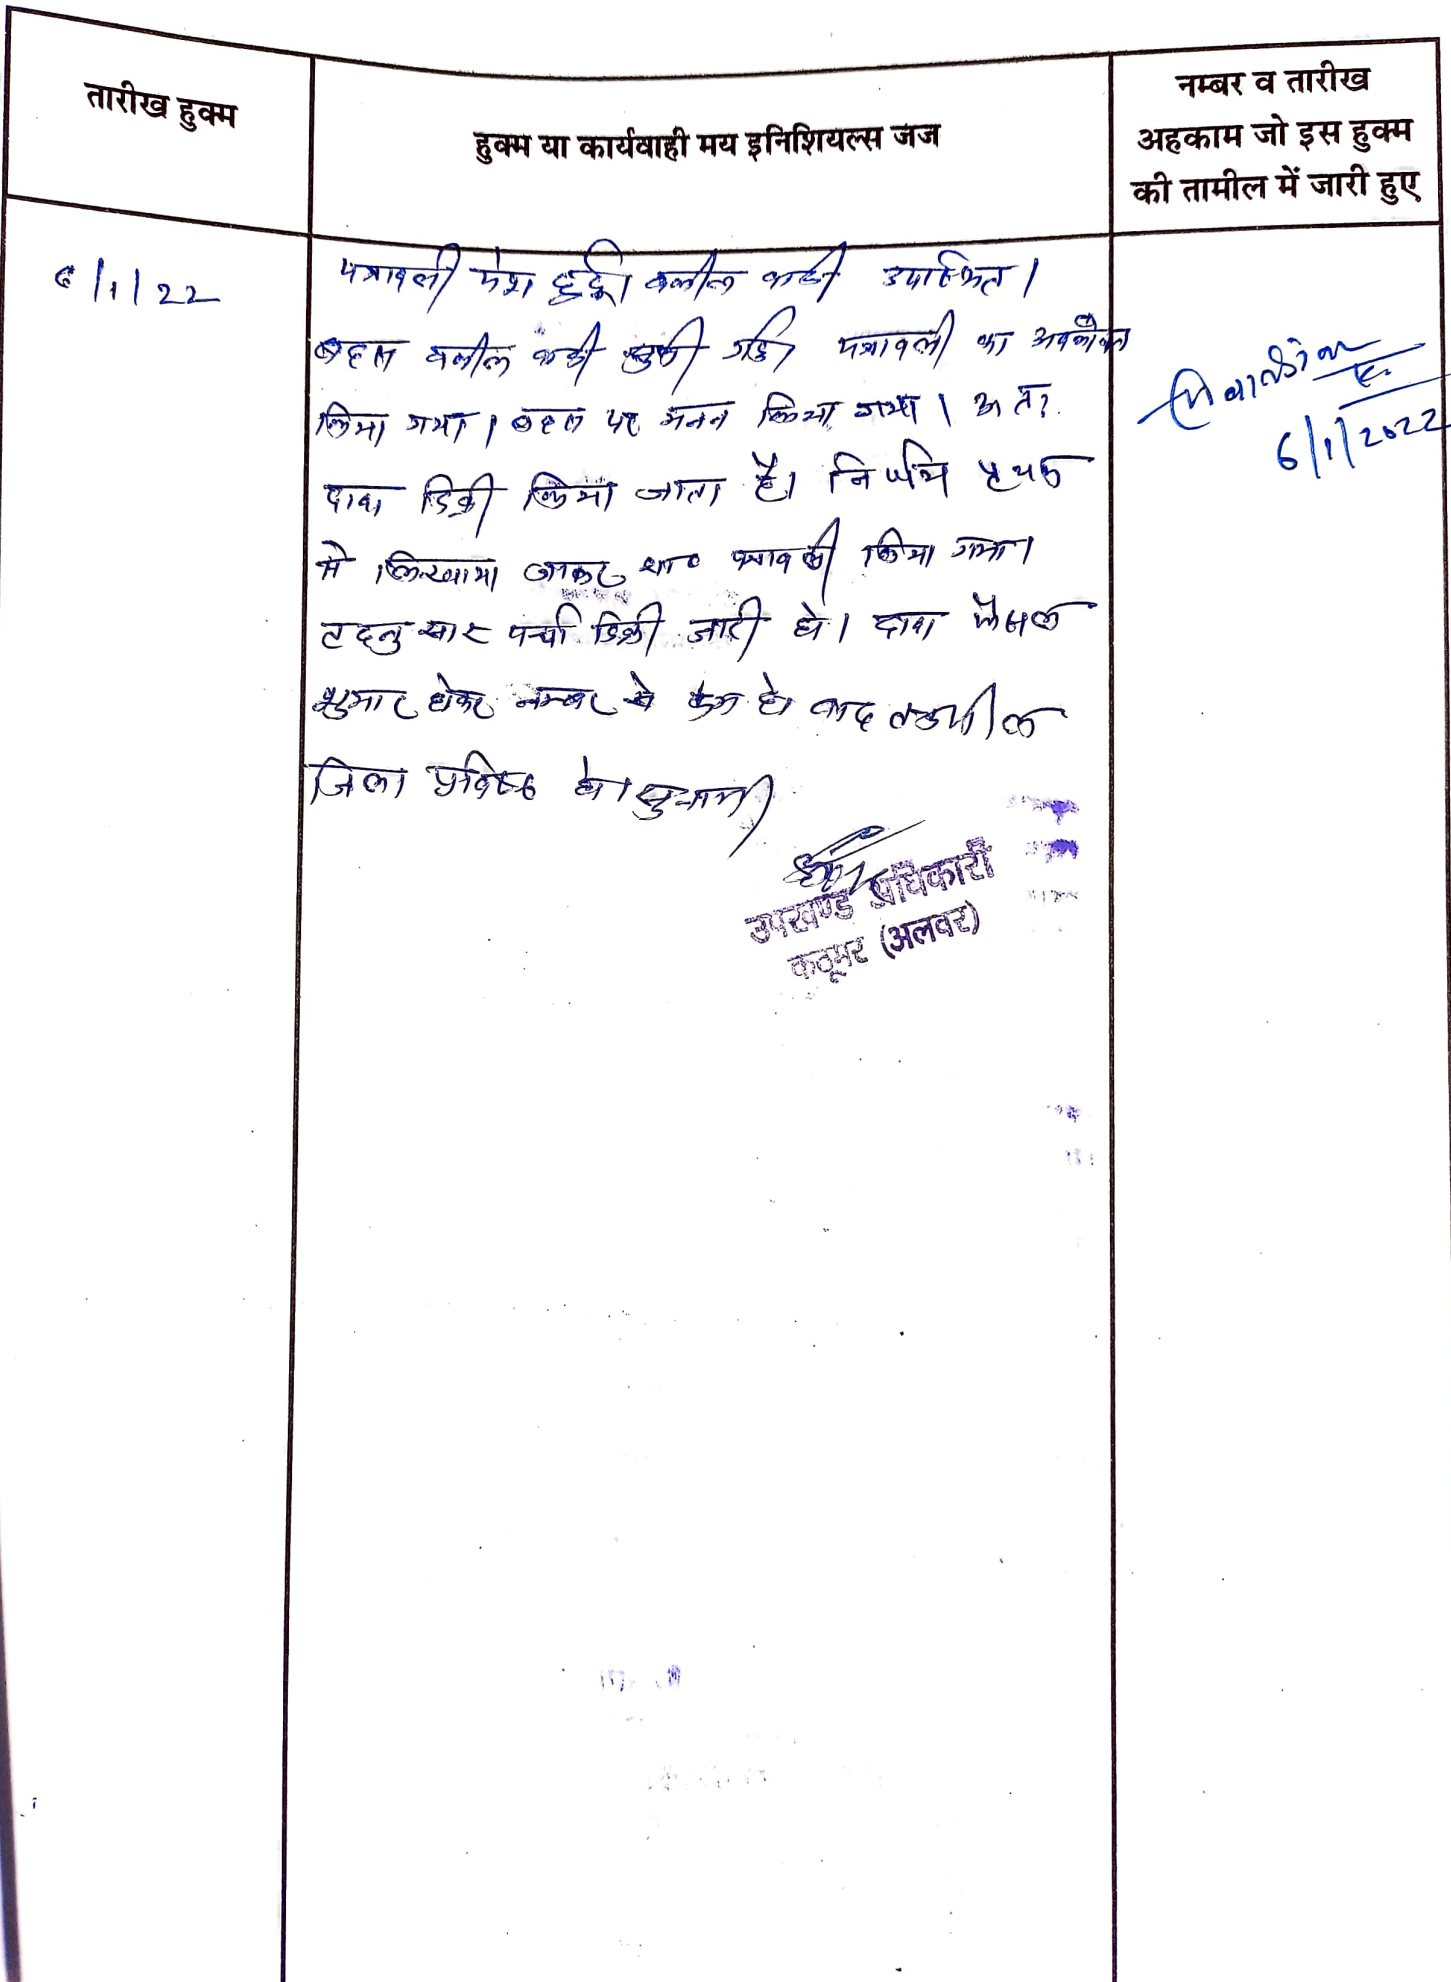 तारीख हुक्म
हुक्म या कार्यवाही मय इनिशियल्स जज
नम्बर व तारीख
अहकाम जो इस हुक्म
की तामील में जारी हुए
6/1/22
पत्रावली पेश हुई। वकील वादी उपस्थित।
बहस वकील वादी सुनी गई। पत्रावली का अवलोकन
किया गया। बहस पर मनन किया गया। अतः
दावा डिक्री किया जाता है। निर्णय पृथक
से लिखाया जाकर शा० पत्रावली किया गया।
तदनुसार पर्चा डिक्री जारी हो। दावा फैसल
शुमार होकर नम्बर से कम हो बाद तकमील
जिला प्रविष्ठ हो।
उपखण्ड अधिकारी
कठूमर (अलवर)
6/1/2022